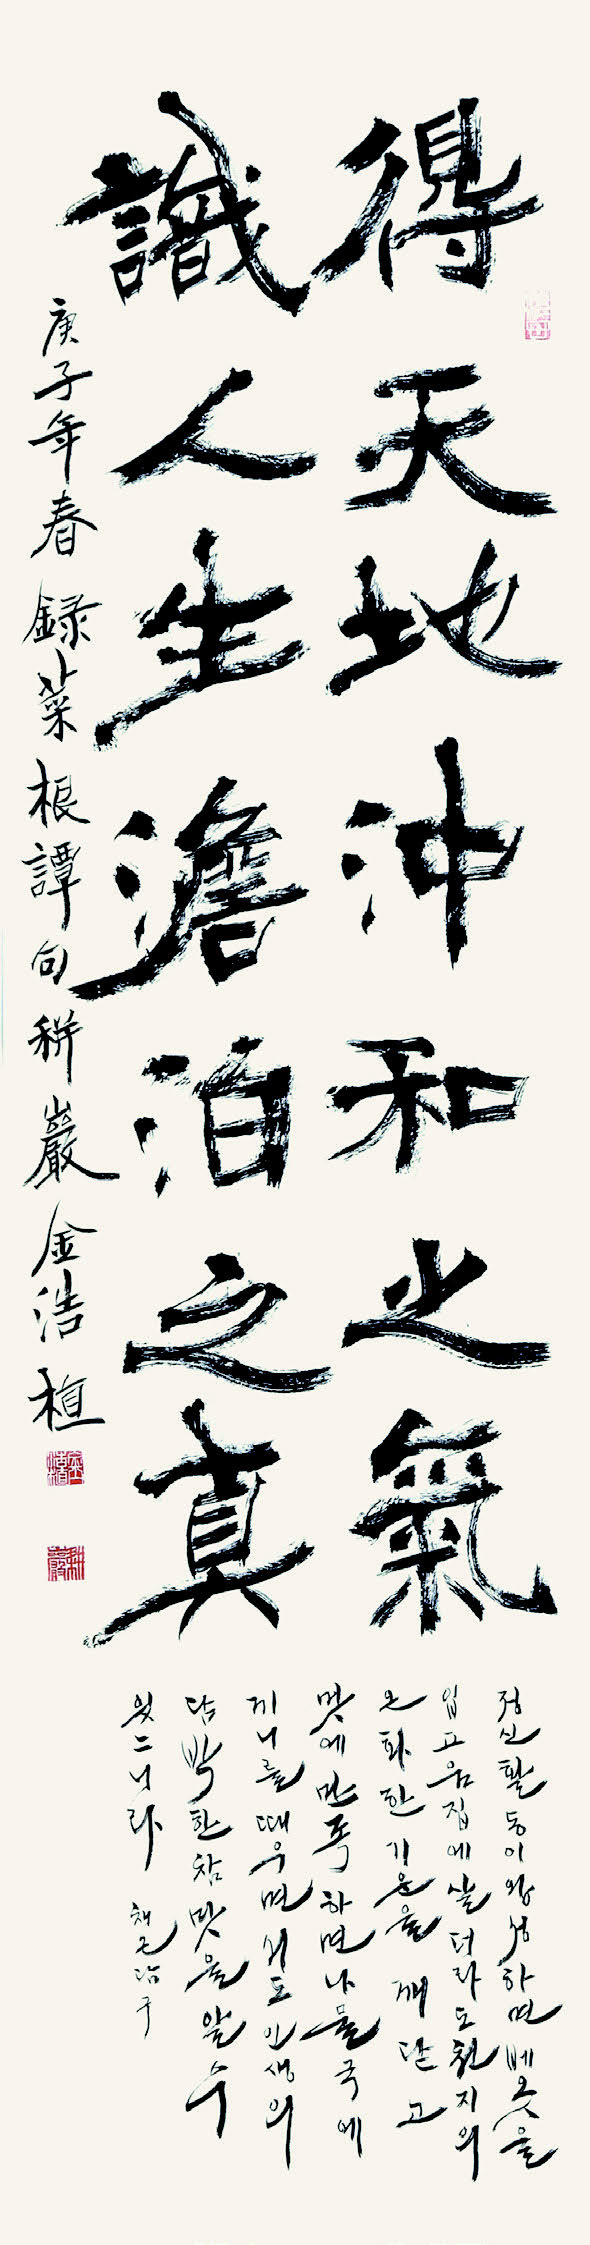 得天地沖和之氣
識人生澹泊之真
庚子年春 錄菜根譚句 耕巖 金浩植
정신활동이 왕성하면 베옷을
입고 움집에 살더라도 천지의
온화한 기운을 깨닫고
맛에 만족하면 나물국에
끼니를 때우면서도 인생의
담박한 참맛을 알 수
있느니라 채근담구